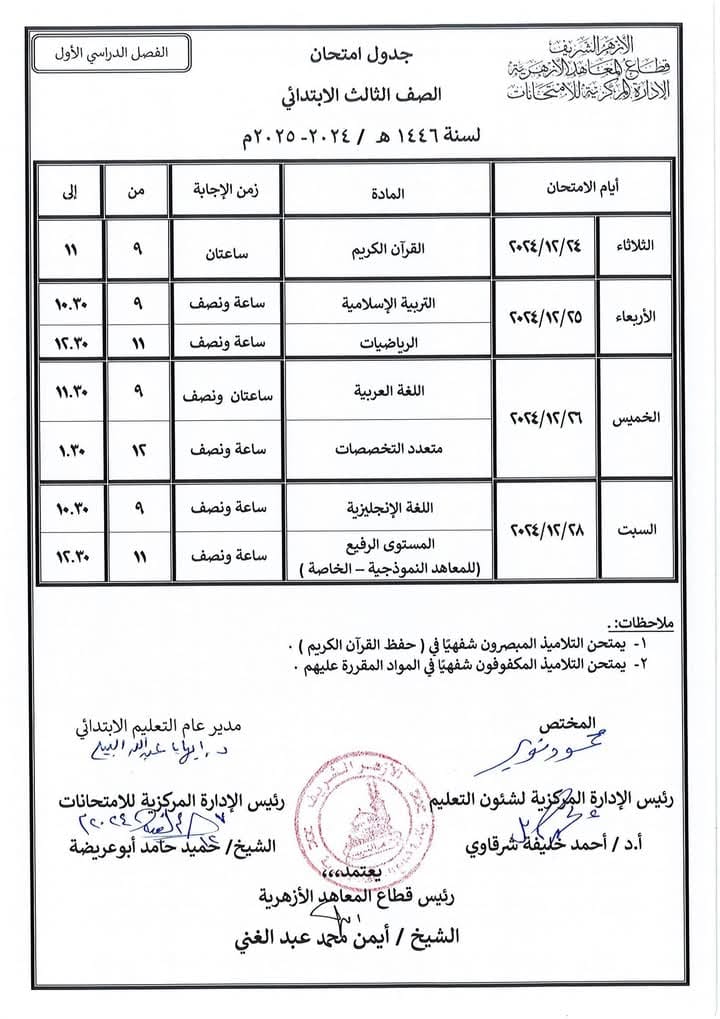 الأزهر الشريف
قطاع المعاهد الأزهرية
الإدارة المركزية للامتحانات
جدول امتحان
الصف الثالث الابتدائي
لسنة ١٤٤٦ هـ / ٢٠٢٤- ٢٠٢٥م
الفصل الدراسي الأول
أيام الامتحان المادة زمن الإجابة من إلى
الثلاثاء ٢٠٢٤/١٢/٢٤ القرآن الكريم ساعتان ٩ ١١
الأربعاء ٢٠٢٤/١٢/٢٥ التربية الإسلامية ساعة ونصف ٩ ١٠.٣٠
الرياضيات ساعة ونصف ١١ ١٢.٣٠
الخميس ٢٠٢٤/١٢/٢٦ اللغة العربية ساعتان ونصف ٩ ١١.٣٠
متعدد التخصصات ساعة ونصف ١٢ ١.٣٠
السبت ٢٠٢٤/١٢/٢٨ اللغة الإنجليزية ساعة ونصف ٩ ١٠.٣٠
المستوى الرفيع
(للمعاهد النموذجية – الخاصة ) ساعة ونصف ١١ ١٢.٣٠
ملاحظات: .
١- يمتحن التلاميذ المبصرون شفهيًا في ( حفظ القرآن الكريم ) .
٢- يمتحن التلاميذ المكفوفون شفهيًا في المواد المقررة عليهم .
المختص
مدير عام التعليم الابتدائي
رئيس الإدارة المركزية لشئون التعليم
أ.د / أحمد خليفة شرقاوي
رئيس الإدارة المركزية للامتحانات
الشيخ/ حميد حامد أبوعريضة
الأزهر الشريف
يعتمد،،،
رئيس قطاع المعاهد الأزهرية
الشيخ / أيمن محمد عبد الغني